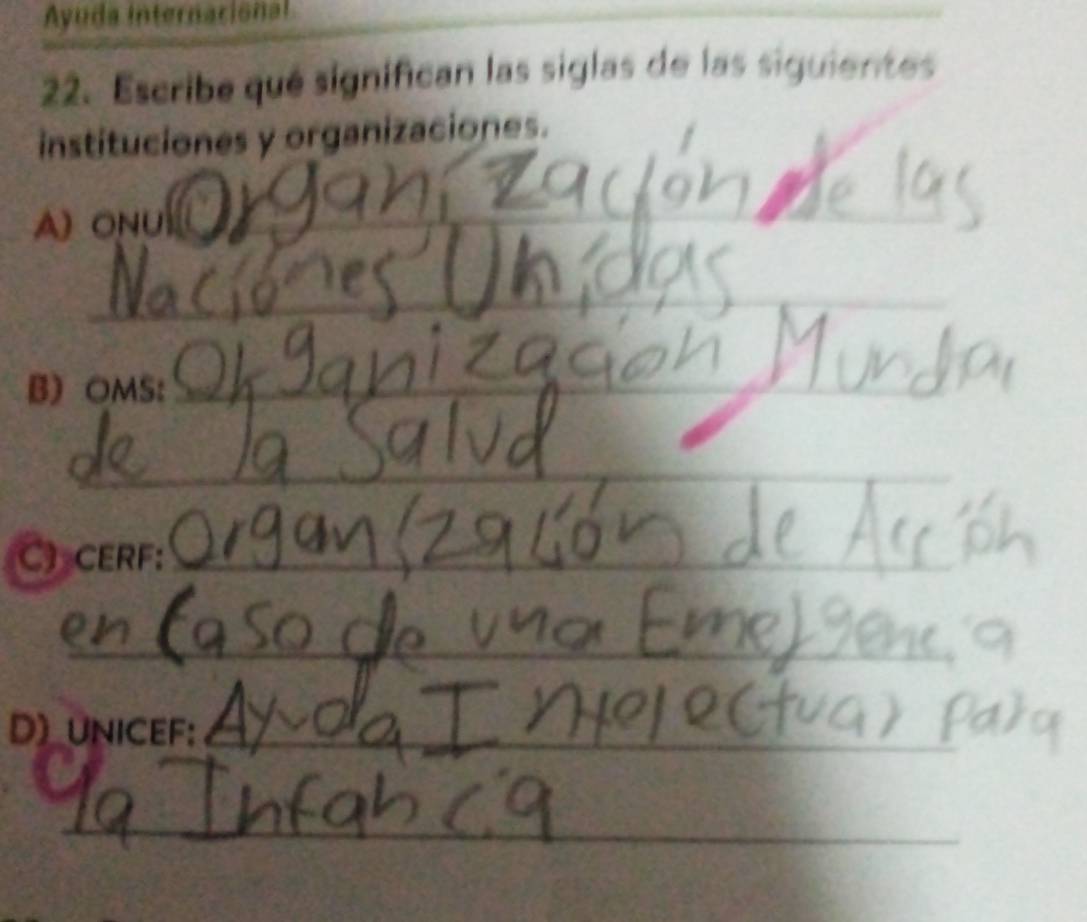 Ayuda internacional
22. Escribe qué significan las siglas de las siguientes
instituciones y organizaciones.
A) ONU: Organización de las
Naciones Unidas
B) OMS: Organización Mundial
de la Salud
C) CERF: Organización de Acción
en Caso de una Emergencia
D) UNICEF: Ayuda Intelectual para
la Infancia